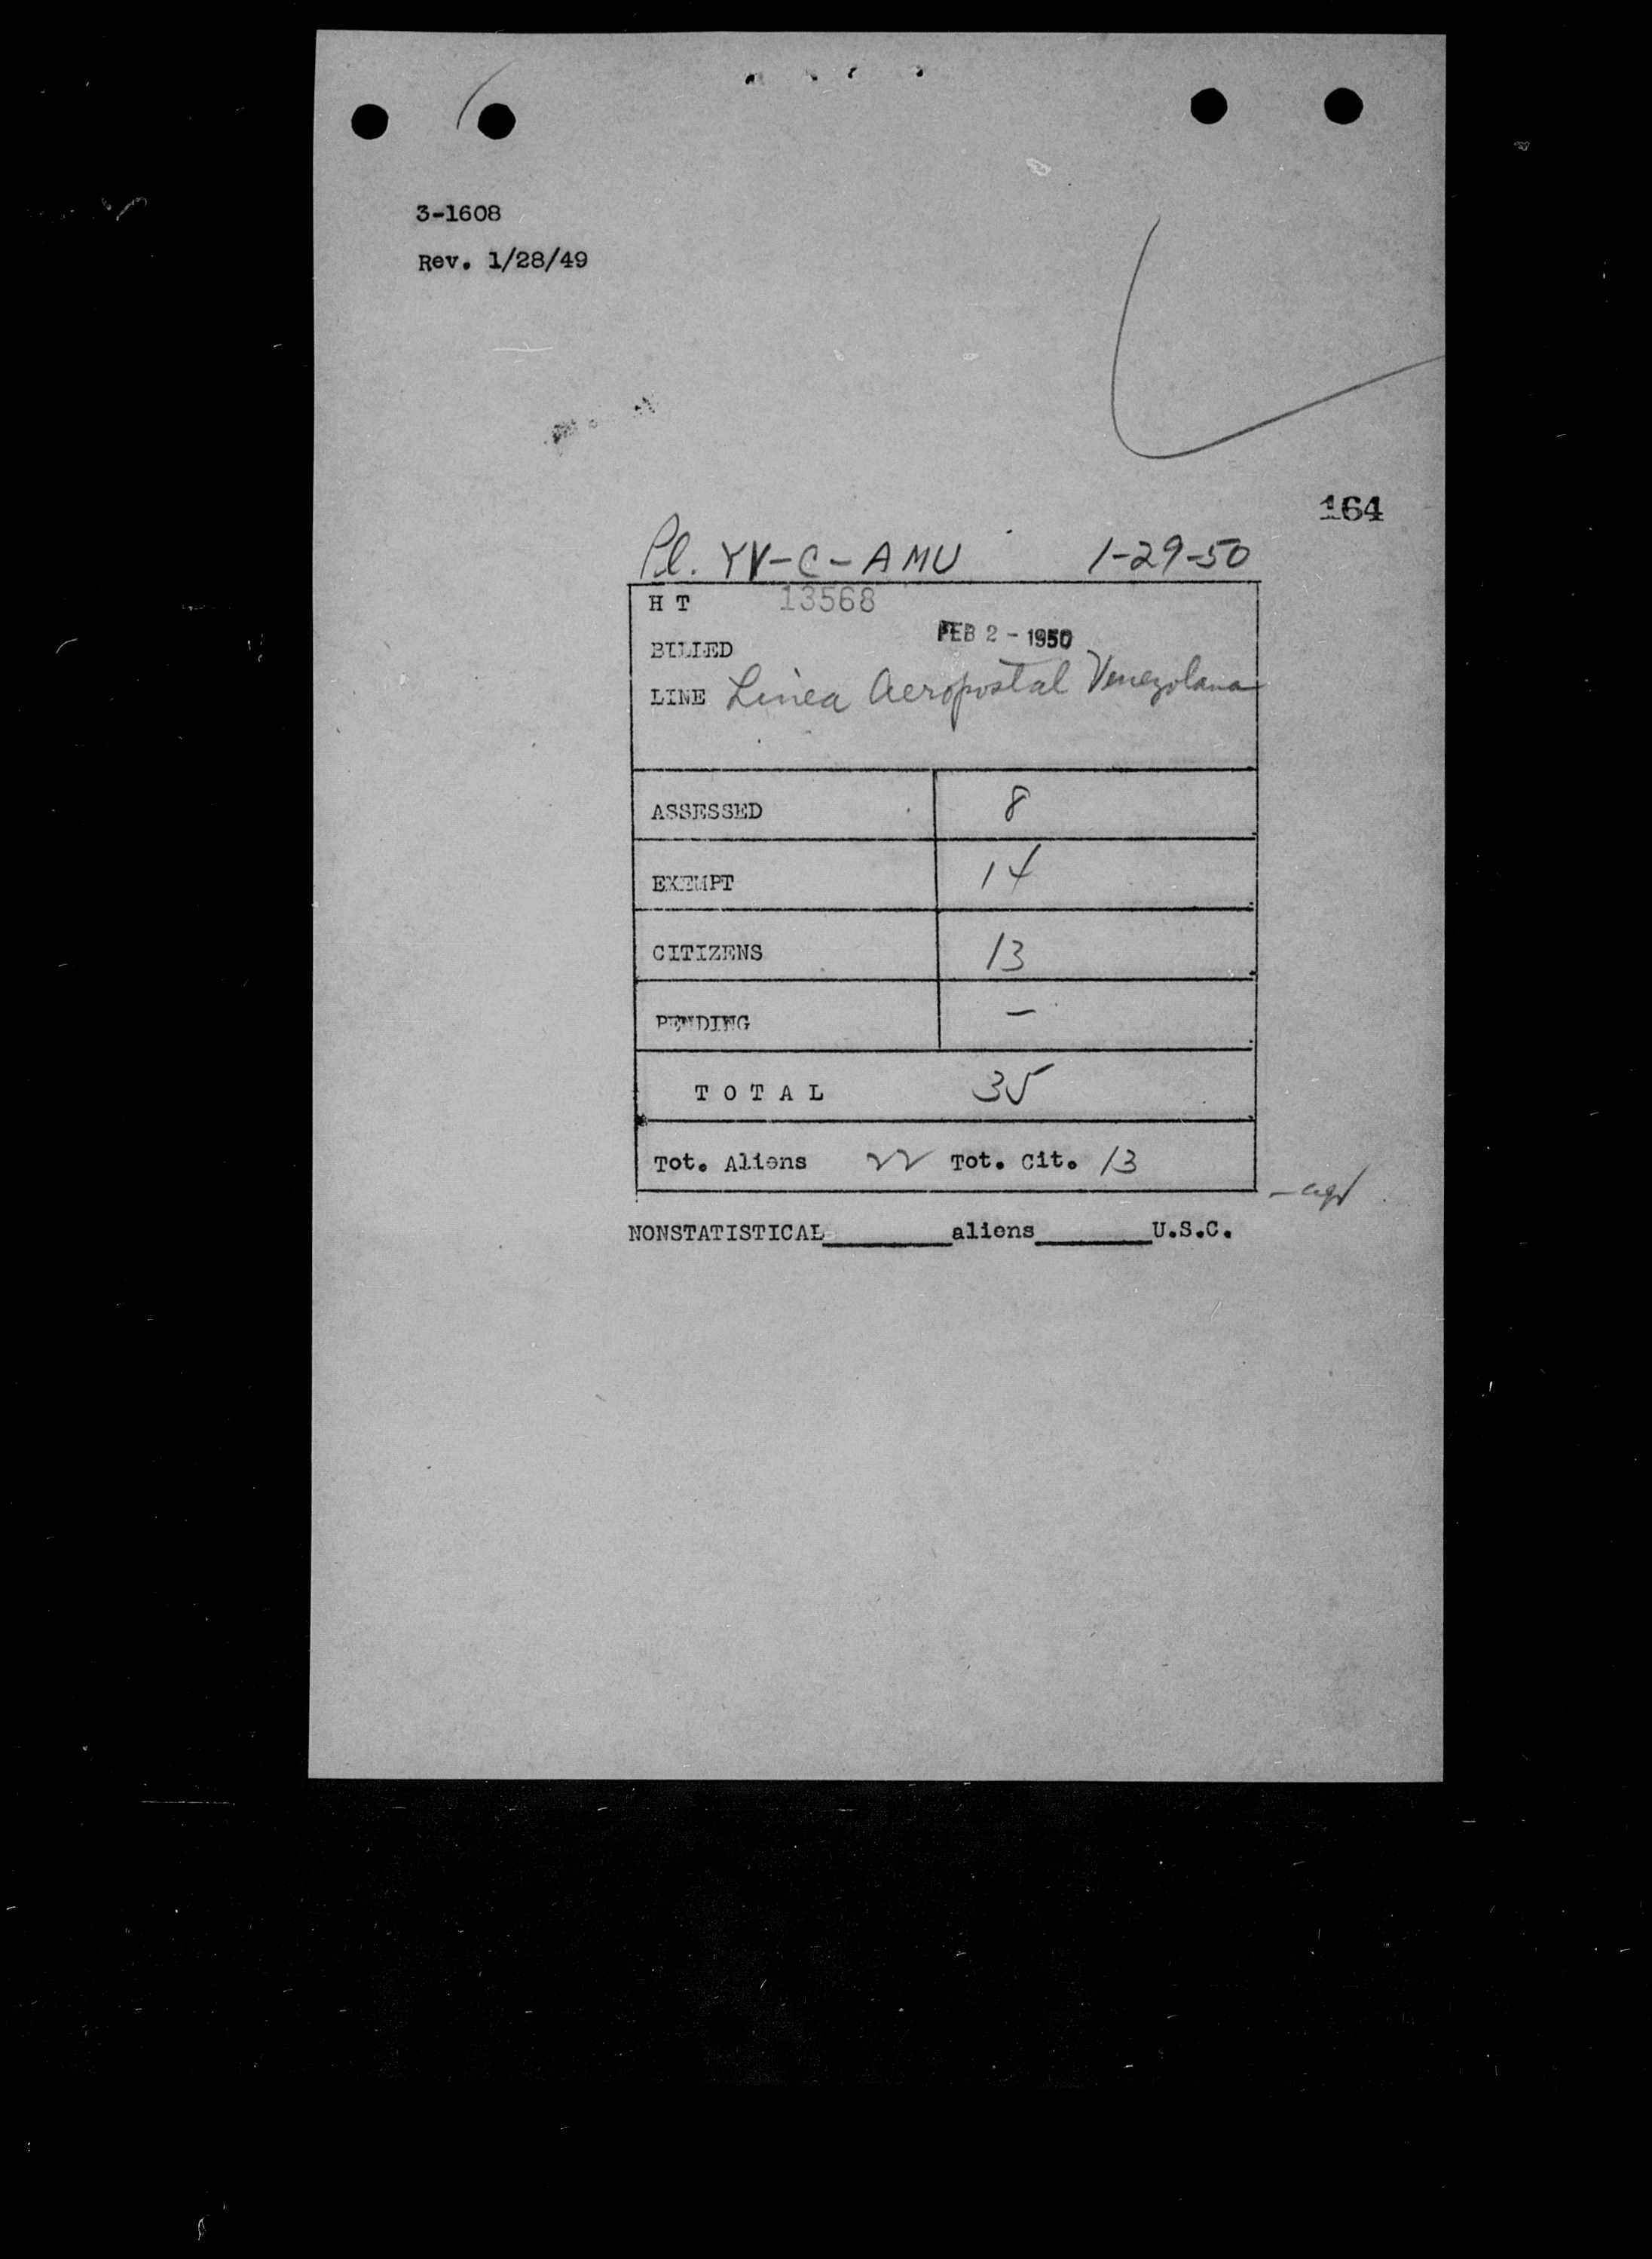 3-1608
Rev. 1/28/49
164
Pl. YV-C-AMU 1-29-50
H T 13568
BILLED FEB 2 - 1950
LINE Linea Aeropostal Venezolana
ASSESSED 8
EXEMPT 14
CITIZENS 13
PENDING —
T O T A L 35
Tot. Aliens 22 Tot. Cit. 13
NONSTATISTICAL________aliens________U.S.C.